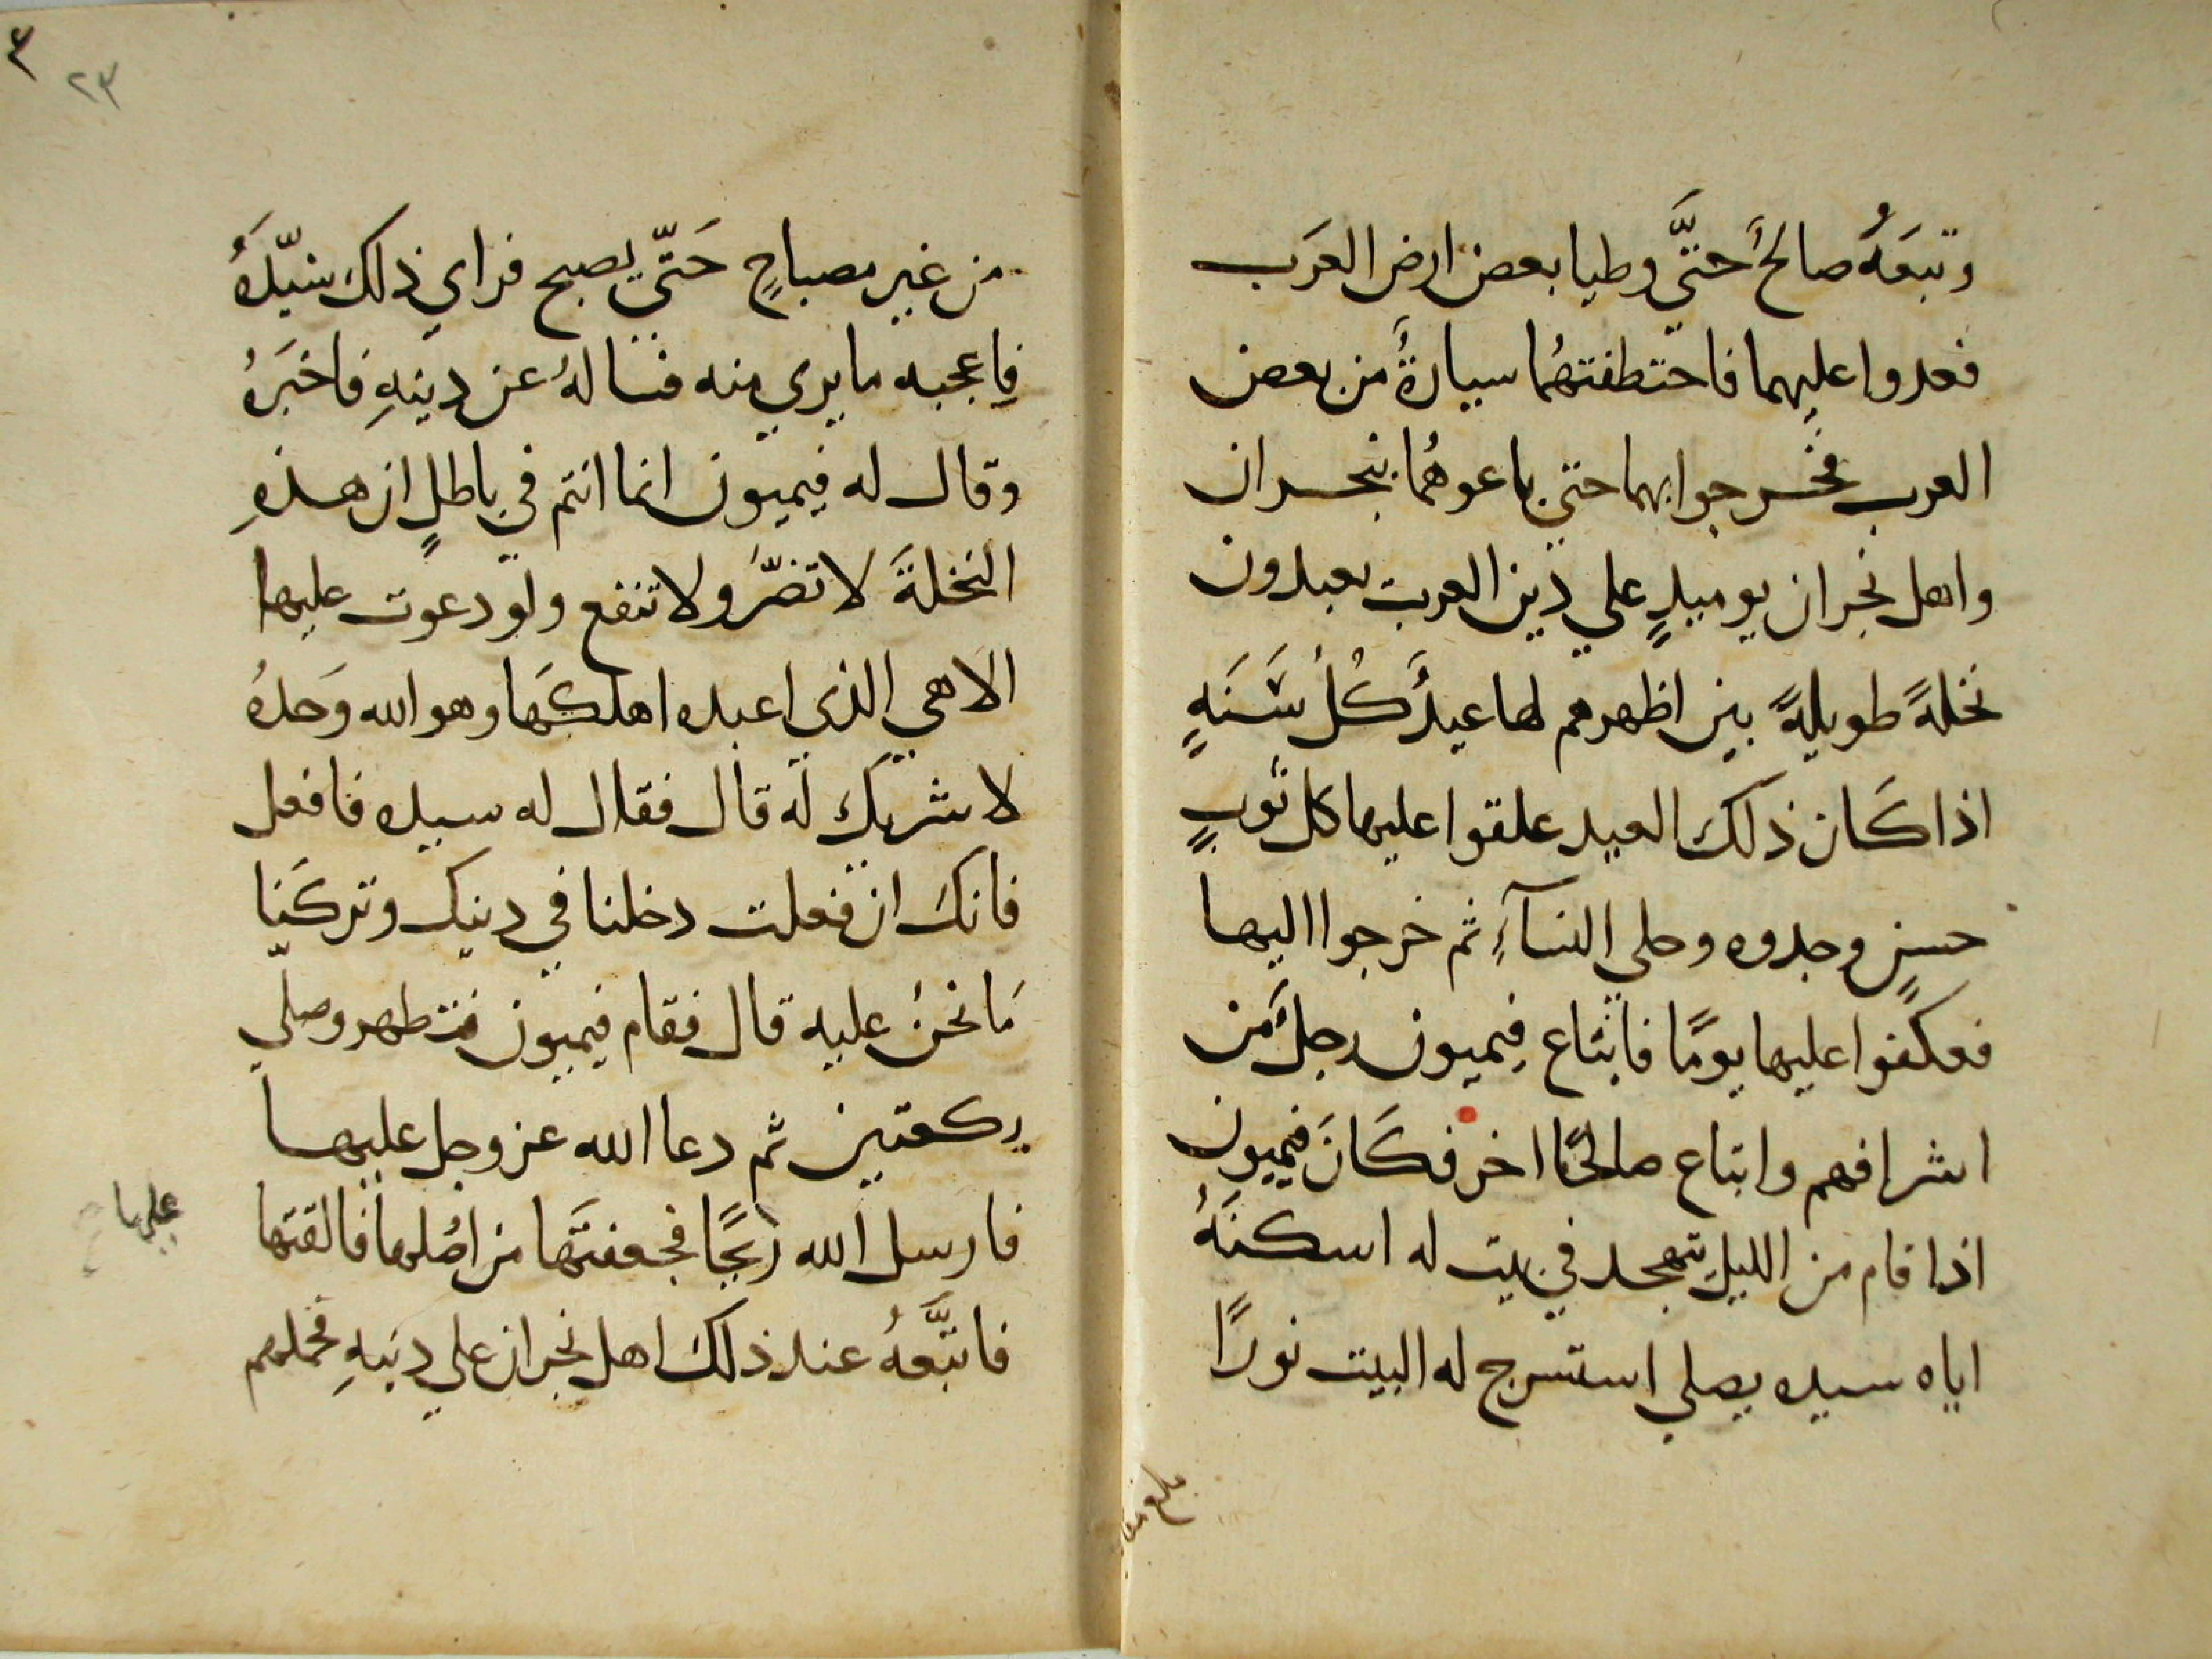 وتبعَهُ صالحٌ حتَّى وطيا بعض ارض العَرَب
فعدوا عليهما فاختطفتهُما سيارةٌ من بعض
العرب فخرجوا بهما حتي باعوهُما بنجران
واهل نجران يوميذٍ علي دين العرب يعبدون
نخلةً طويلةً بين اظهرهم لها عيدٌ كُل سَنَةٍ
اذا كَان ذلك العيد علقوا عليها كل ثوبٍ
حسنٍ وجدوه وحلي النسآءِ ثم خرجوا اليها
فعكفوا عليها يومًا فابتاع فيميون رجلٌ من
اشرافهم وابتاع صالحًا اخر فكَانَ فيميون
اذا قام من الليل يتهجد في بيت له اسكنَهُ
اياه سيده يصلي استسرج له البيت نورًا
٤
٢٣
من غير مصباحٍ حَتّي يصبح فراي ذلك سيّدُهُ
فاعجبه ما يري منه فساله عن دينِهِ فاخبَرهُ
وقال له فيميون انما انتم في باطلٍ ان هذهِ
النخلةَ لا تضرُّ ولا تنفع ولو دعوت عليها
الاهي الذي اعبده اهلكَها وهو الله وَحدهُ
لا شريك له قال فقال له سيده فافعل
فانكَ ان فعلت دخلنا في دينك وتركَنا
مَا نحنُ عليه قال فقام فيميون فتطهر وصلّي
ركعتين ثم دعا الله عز وجل عليها
فارسل الله ريحًا فجعفتَها من اصُلها فالقتها
عليها
فاتبَّعهُ عند ذلك اهل نجران علي دينِهِ فحملهم